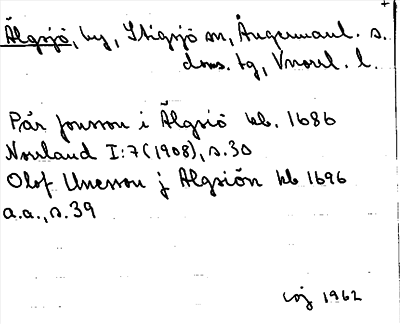 Älgsjö, by, Stigsjö sn, Ångermanl. s.
doms. tg, Vnorrl. l.
Pär Jonsson i Älgsiö kb. 1686
Norrland I:7 (1908), s. 30
Olof Unesson j Algsiön kb 1696
a.a., s. 39
1962